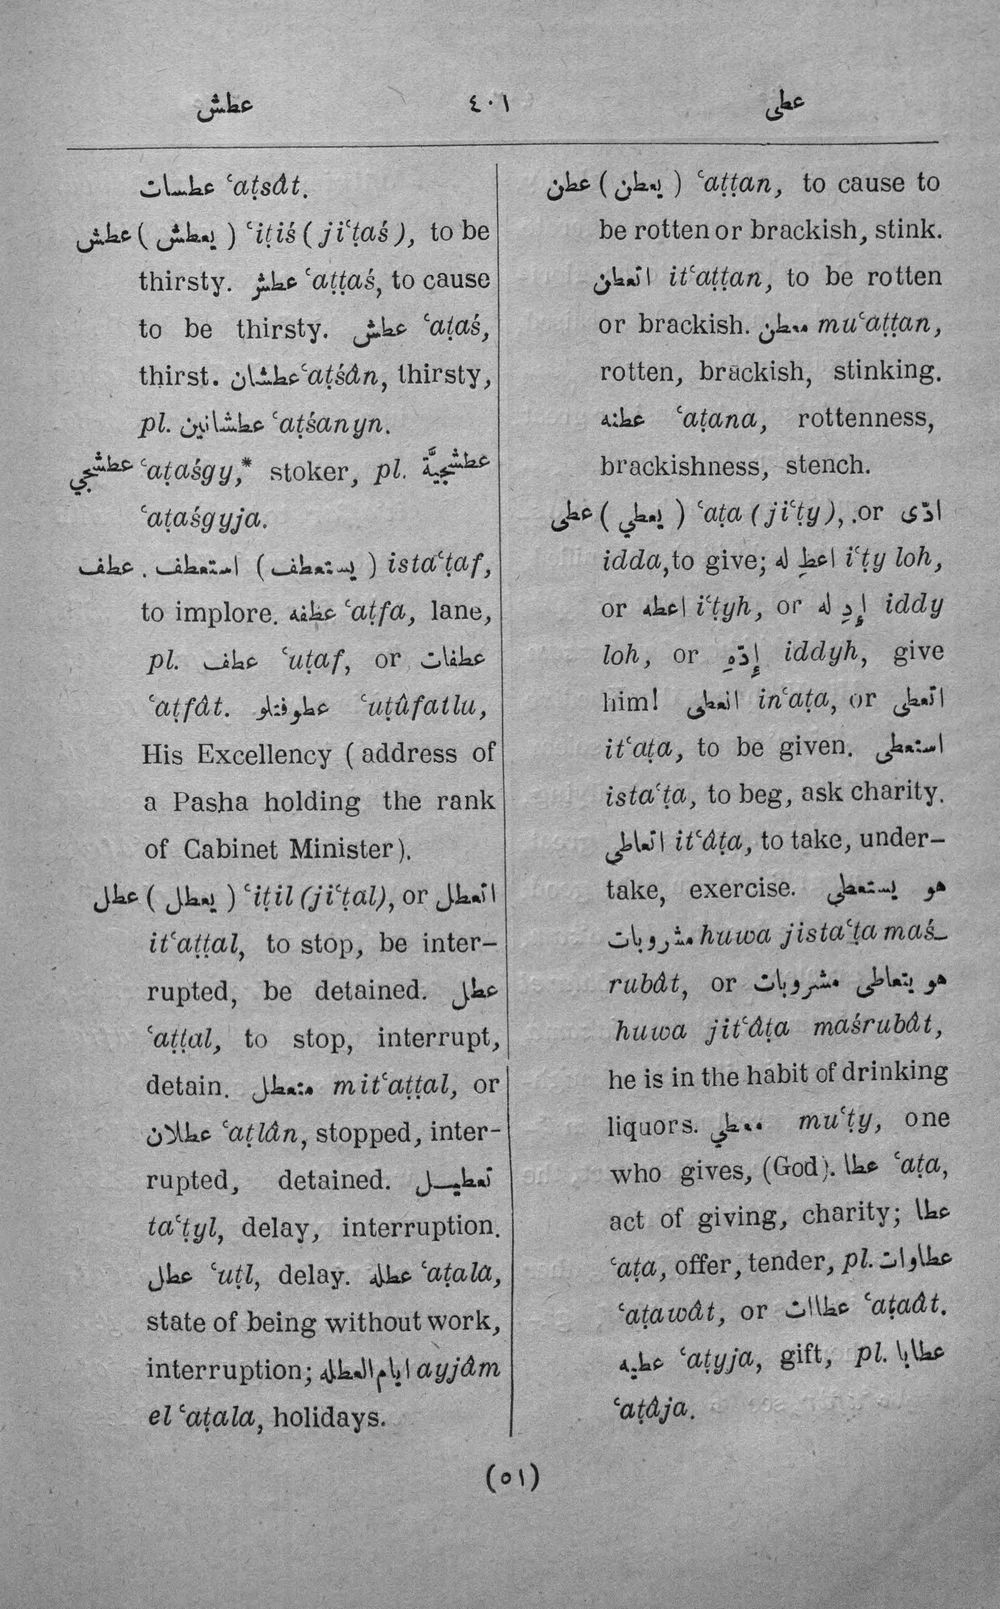 عطش ٤٠١ عطى
عطسات ʿaṭsât.
عطش ( يعطش ) ʿiṭiś ( jiʿṭaś ), to be
thirsty. عطش ʿaṭṭaś, to cause
to be thirsty. عطش ʿaṭaś,
thirst. عطشان ʿaṭśân, thirsty,
pl. عطشانين ʿaṭśanyn.
عطشجي ʿaṭaśgy,* stoker, pl. عطشجيَّة
ʿaṭaśgyja.
عطف . استعطف ( يستعطف ) istaʿṭaf,
to implore. عطفه ʿaṭfa, lane,
pl. عطف ʿuṭaf, or عطفات
ʿaṭfât. عطوفتلو ʿuṭûfatlu,
His Excellency ( address of
a Pasha holding the rank
of Cabinet Minister ).
عطل ( يعطل ) ʿiṭil (jiʿṭal), or اتعطل
itʿaṭṭal, to stop, be inter–
rupted, be detained. عطل
ʿaṭṭal, to stop, interrupt,
detain. متعطل mitʿaṭṭal, or
عطلان ʿaṭlân, stopped, inter-
rupted, detained. تعطيـل
taʿṭyl, delay, interruption.
عطل ʿuṭl, delay. عطله ʿaṭala,
state of being without work,
interruption; ايام العطله ayjâm
el ʿaṭala, holidays.
عطن ( يعطن ) ʿaṭṭan, to cause to
be rotten or brackish, stink.
اتعطن itʿaṭṭan, to be rotten
or brackish. معطن muʿaṭṭan,
rotten, brackish, stinking.
عطنه ʿaṭana, rottenness,
brackishness, stench.
عطى ( يعطي ) ʿaṭa ( jiʿṭy ), .or ادّى
idda, to give; اعطِ له iʿṭy loh,
or اعطه iʿṭyh, or إدِ له iddy
loh, or إدّهِ iddyh, give
him! انعطى inʿaṭa, or اتعطى
itʿaṭa, to be given. استعطى
istaʿṭa, to beg, ask charity.
اتعاطى itʿâṭa, to take, under–
take, exercise. هو يستعطى
مشروبات huwa jistaʿṭa maś–
rubât, or هو يتعاطى مشروبات
huwa jitʿâṭa maśrubât,
he is in the habit of drinking
liquors. معطي muʿṭy, one
who gives, (God). عطا ʿaṭa,
act of giving, charity; عطا
ʿaṭa, offer, tender, pl. عطاوات
ʿaṭawât, or عطاات ʿaṭaât.
عطيه ʿaṭyja, gift, pl. عطايا
ʿaṭâja.
(٥١)